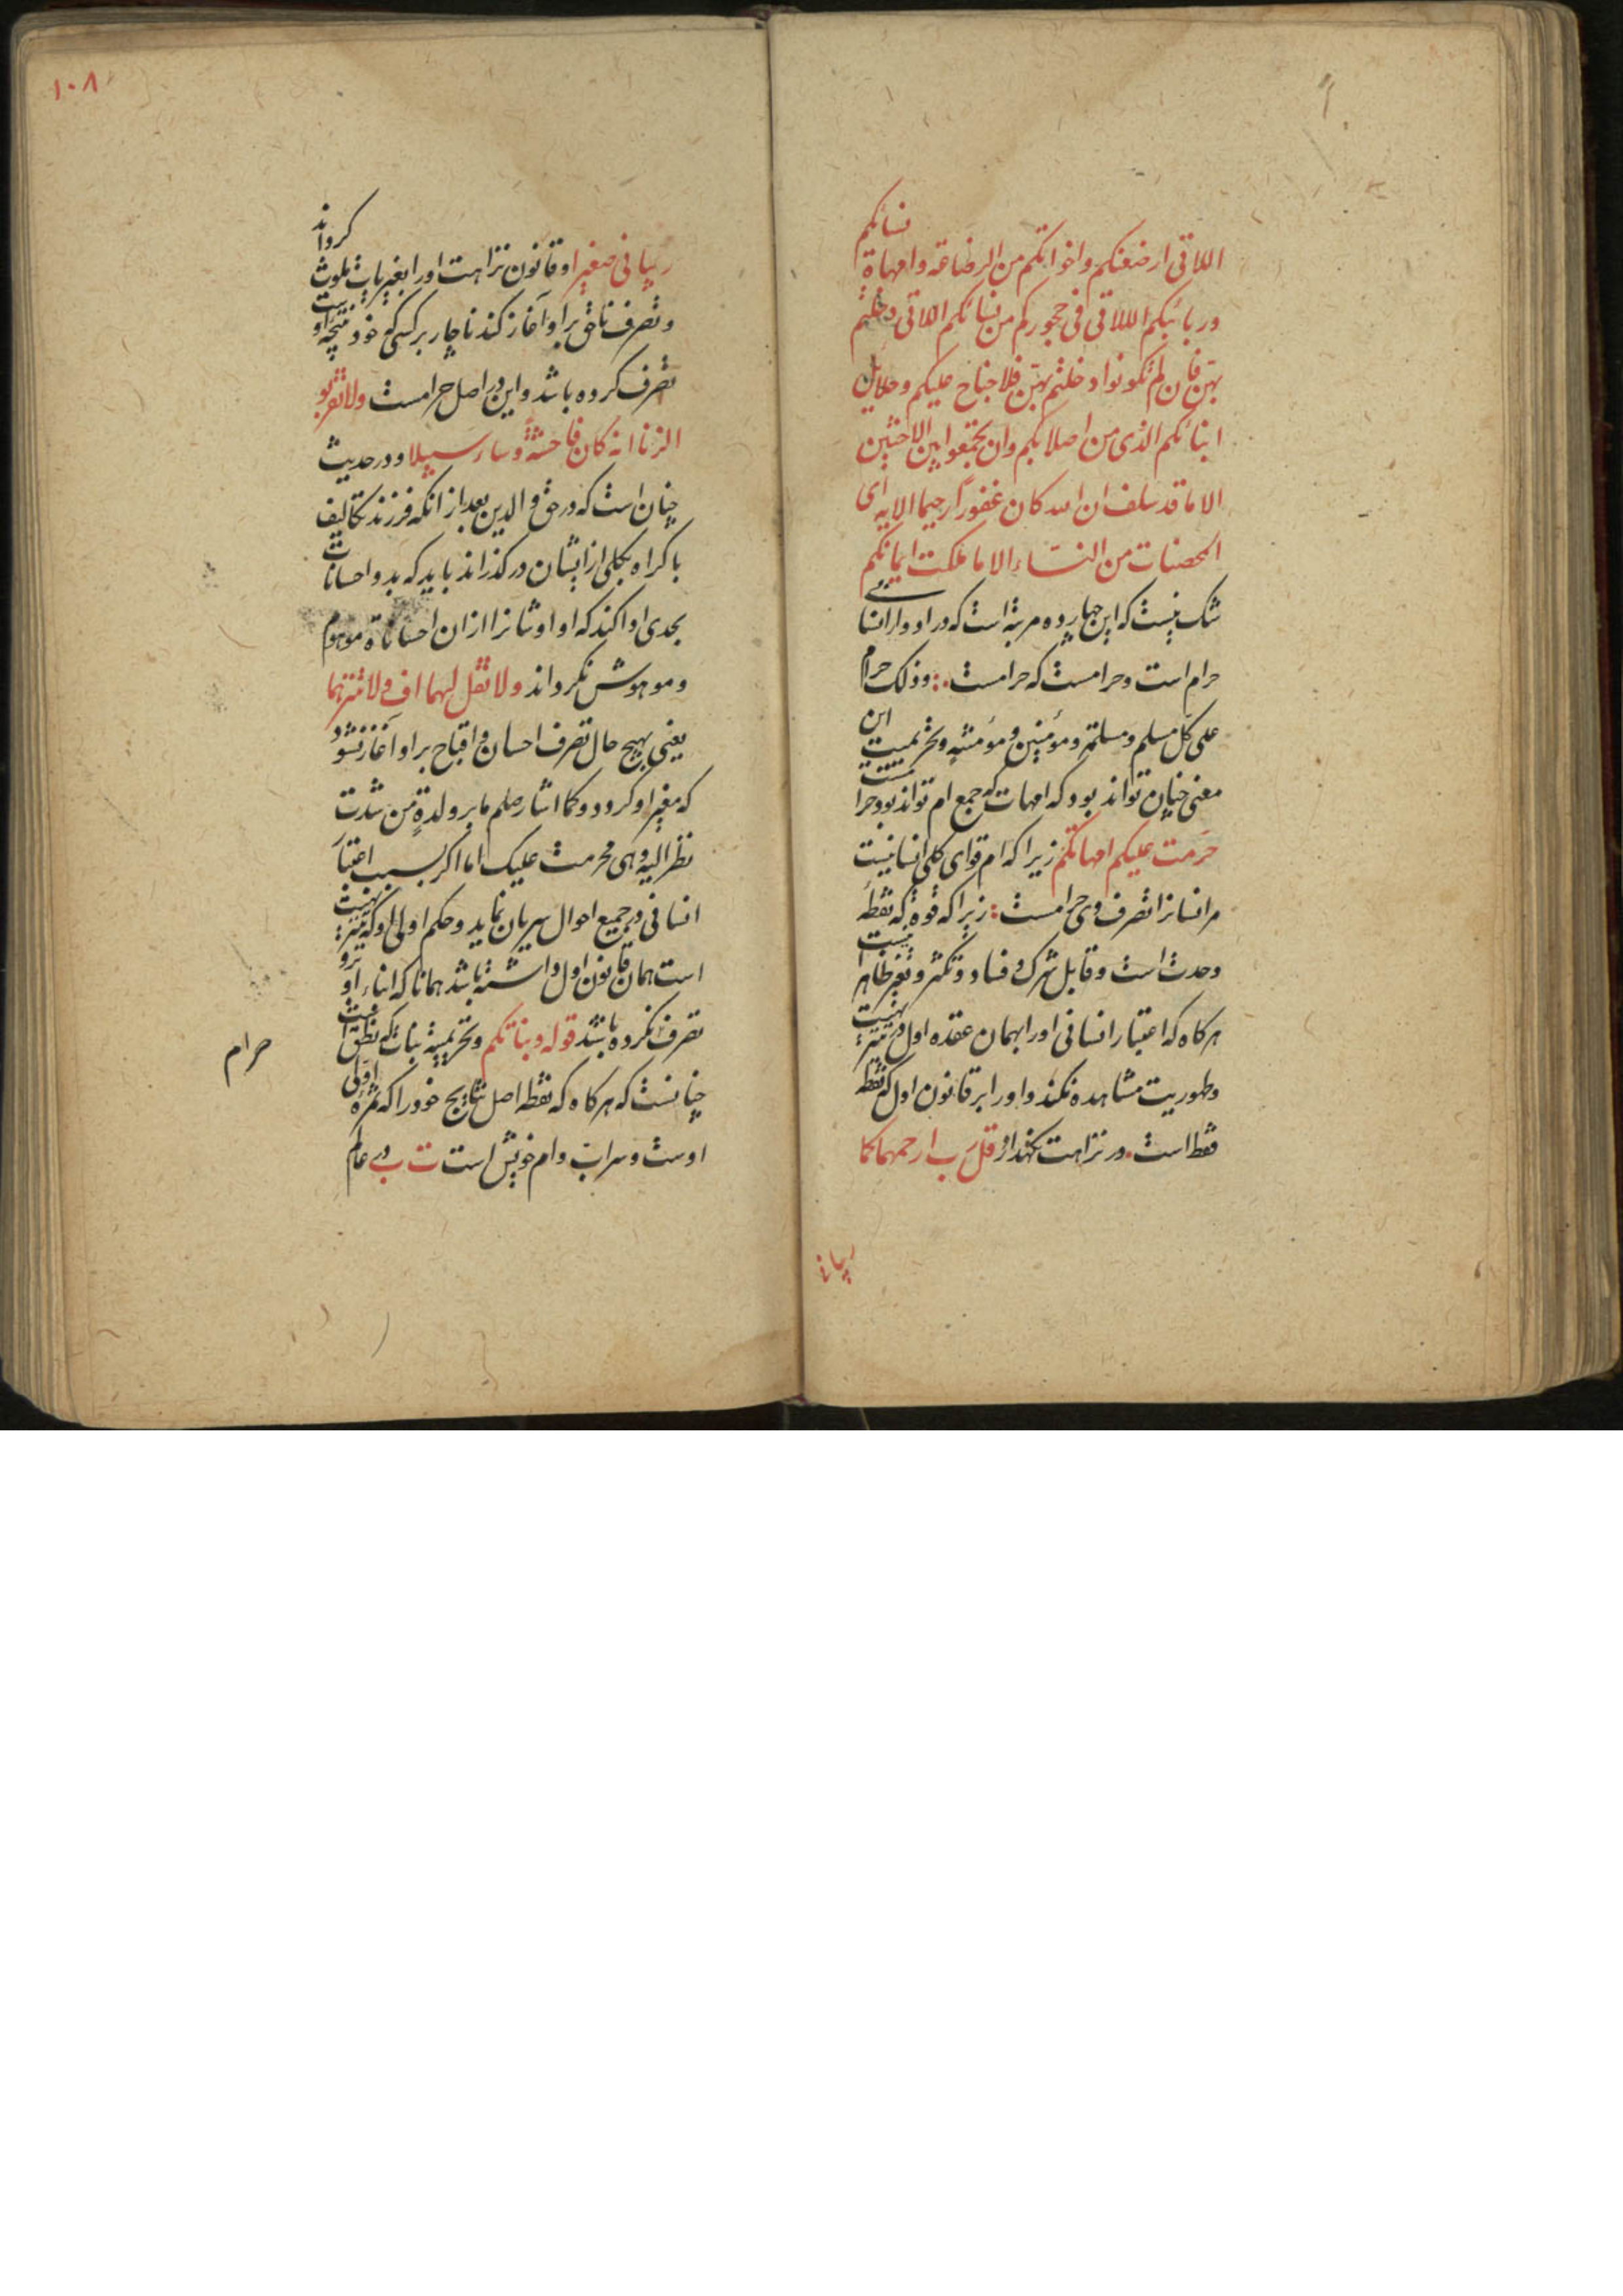 اللاتی ارضعنکم واخواتکم من الرضاعة وامهاة نسائکم
وربائبکم اللاتی فی حجورکم من نسائکم اللاتی دخلتم
بهن فان لم تکونوا دخلتم بهن فلا جناح علیکم وحلایل
ابنائکم الذی من اصلابکم وان تجمعوا بین الاختین
الا ما قد سلف ان الله کان غفورا رحیما الایه ای
المحصنات من النساء الا ما ملکت ایمانکم
شک نیست که این چهارده مرتبه است که در ادوار انسانی
حرام است وحرامست که حرامست وذلک حرام
علی کل مسلم ومسلمة ومؤمنین ومؤمنة وتحریمیت این
معنی چنان تواند بود که امهات که جمع ام تواند بود حرامست
حرمت علیکم امهاتکم زیرا که ام قوای کلی انسانیست
مر انسانرا تصرف وی حرامست زیرا که قوة که نقطه
وحدت است وقابل شرک وفساد وتکثر وتغیر ظاهر نیست
هرکاه که اعتبار انسانی اورا بهمان عقده اول در
وطهوریت مشاهده نکند واورا بر قانون اول که نقطه
فقط است در نزاهت نکهدارد قل رب ارحمهما کما
ربیانی
۱۰۸
ربیانی صغیرا وقانون نزاهت اورا بغیریات ملوث کرداند
وتصرف ناحق بر او آغاز کند ناچار بر کسی که خود نتیجه اوست
تصرف کرده باشد واین در اصل حرامست ولا تقربو
الزنا انه کان فاحشة وساء سبیلا ودر حدیث
چنان است که در حق والدین بعد از انکه فرزند تکالیف
باکراه بکلی از ایشان درکذراند باید که بدو احسانات
بحدی ادا کند که او اوشانرا ازان احساناة موهوم
وموهوش نکرداند ولا تقل لهما اف ولا تنهرهما
یعنی بهیچ حال تصرف احسان واقباح بر او آغاز نشود
که مغیر او کردد وکما اشار صلعم ما بر ولدة من شدت
نظر الیه وهی محرمت علیک اما اکر بسبب اعتبار
انسانی در جمیع احوال سریان نماید وحکم اولی او که
است همان قانون اول داشته باشد همانا که ابناء او برو
تصرف نکرده باشد قوله وبناتکم وتحریمیة بنات که نطق است
چنانست که هرکاه که نقطه اصل نتایج خودرا که ثمره اولی
اوست وسراب وام خویش است ت ب ی عالم
حرام